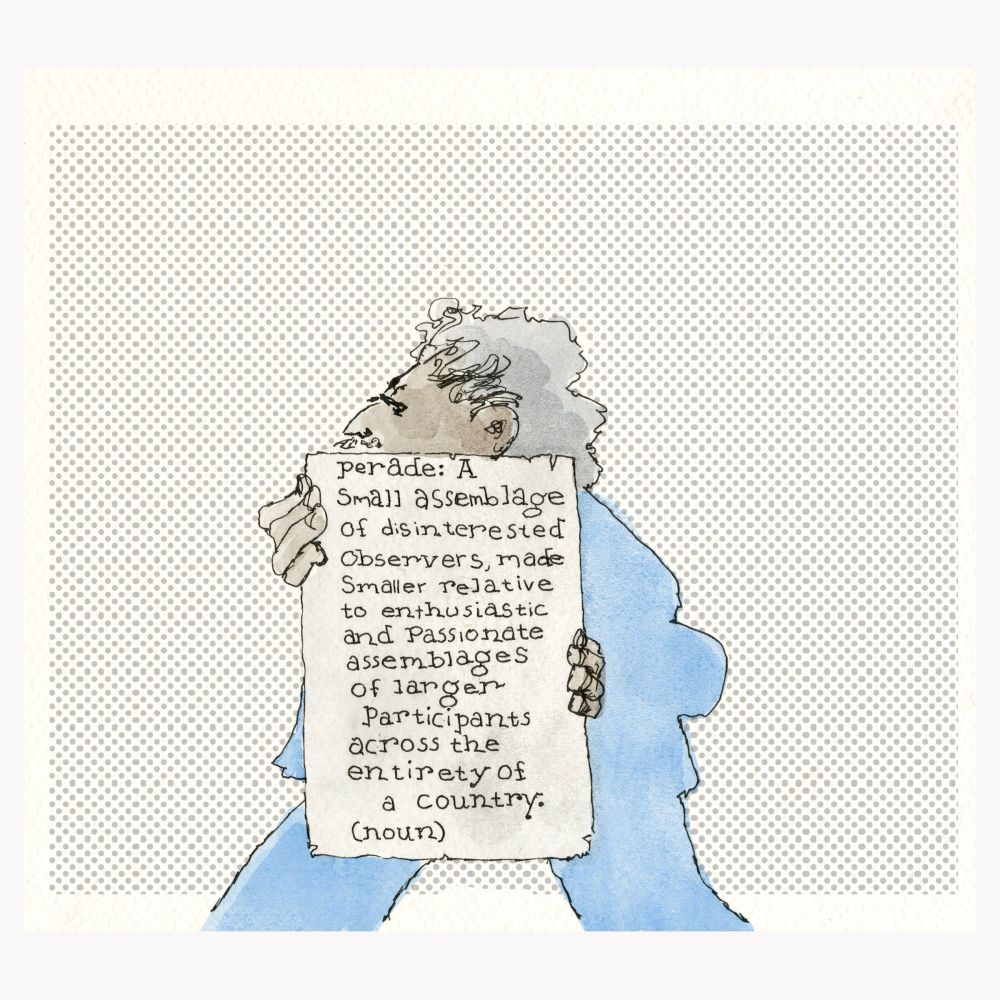 perade: A
Small assemblage
of disinterested
Observers, made
Smaller relative
to enthusiastic
and Passionate
assemblages
of larger
Participants
across the
entirety of
a country.
(noun)